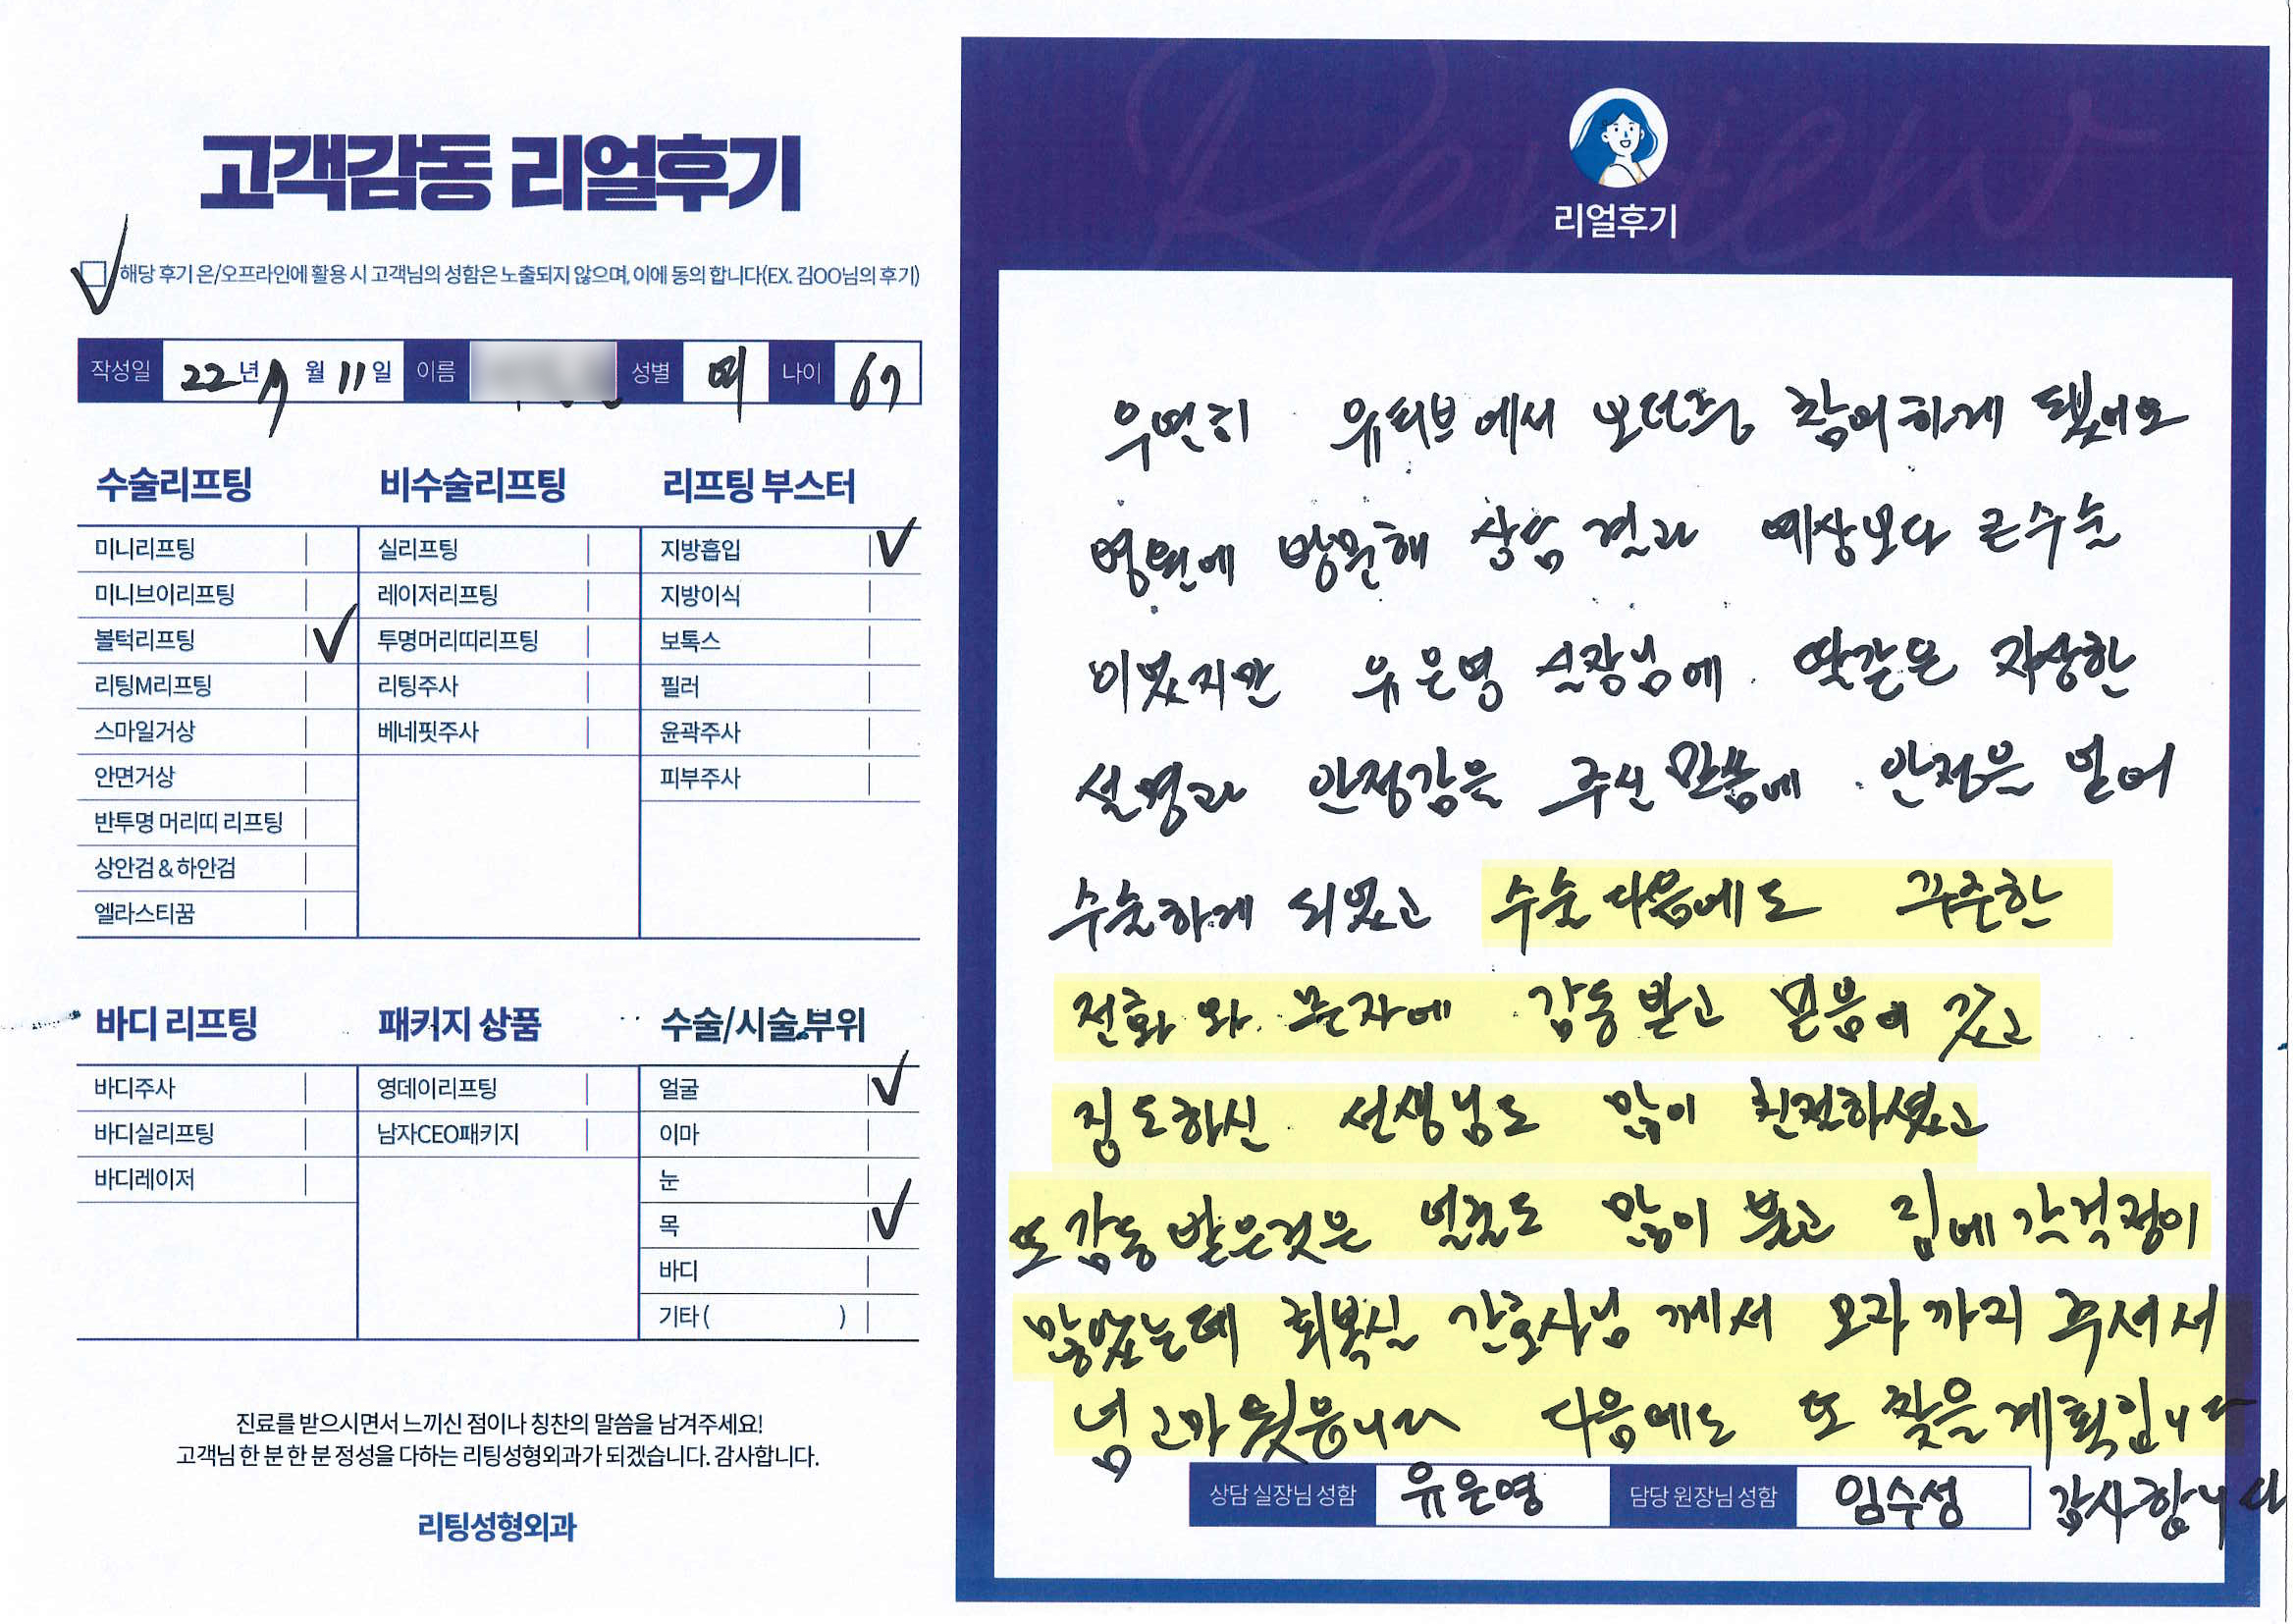 고객감동 리얼후기
해당 후기 온/오프라인에 활용 시 고객님의 성함은 노출되지 않으며, 이에 동의 합니다(EX. 김OO님의 후기)
작성일 22년 9월 11일 이름 성별 여 나이 67
수술리프팅
미니리프팅
미니브이리프팅
볼턱리프팅
리팅M리프팅
스마일거상
안면거상
반투명 머리띠 리프팅
상안검 & 하안검
엘라스티꿈
비수술리프팅
실리프팅
레이저리프팅
투명머리띠리프팅
리팅주사
베네핏주사
리프팅 부스터
지방흡입
지방이식
보톡스
필러
윤곽주사
피부주사
바디 리프팅
바디주사
바디실리프팅
바디레이저
패키지 상품
영데이리프팅
남자CEO패키지
수술/시술 부위
얼굴
이마
눈
목
바디
기타 ( )
진료를 받으시면서 느끼신 점이나 칭찬의 말씀을 남겨주세요!
고객님 한 분 한 분 정성을 다하는 리팅성형외과가 되겠습니다. 감사합니다.
리팅성형외과
Review
리얼후기
우연히 유튜브에서 보던중 참여하게 됐어요
병원에 방문해 상담 결과 예상보다 큰수술
이었지만 유은영 실장님에 딸같은 자상한
설명과 안정감을 주신 말씀에 안정은 얻어
수술하게 되었고 수술 다음에도 꾸준한
전화 와 문자에 감동 받고 믿음이 갔고
집도하신 선생님도 많이 친절하셨고
또 감동 받은것은 얼굴도 많이 붓고 집에 갈걱정이
많았는데 회복실 간호사님 께서 모자까지 주셔서
넘 고마웟읍니다 다음에도 또 찾을 계획입니다
상담 실장님 성함 유은영 담당 원장님 성함 임수성 감사합니다